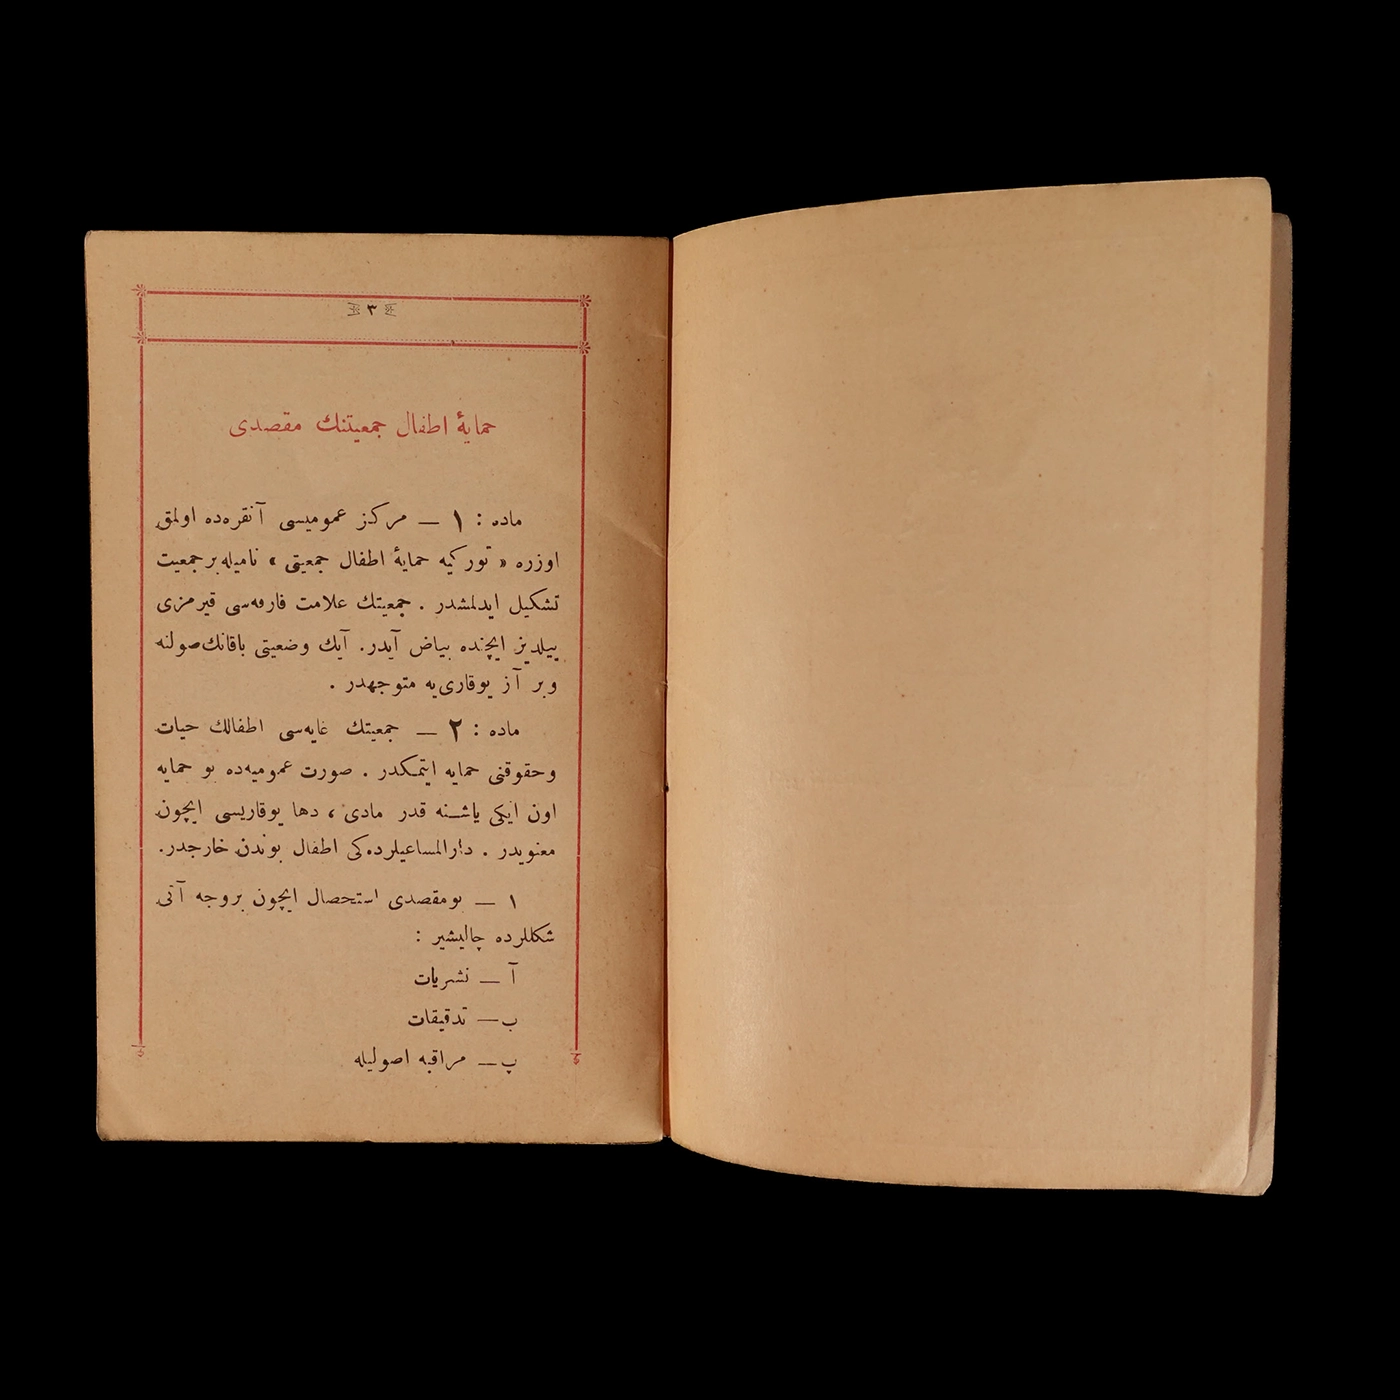 ٣
حمایهٔ اطفال جمعیتنك مقصدی
ماده : ١ — مركز عمومیسی آنقره‌ده اولمق
اوزره « توركیه حمایهٔ اطفال جمعیتی » نامیله بر جمعیت
تشكیل ایدلمشدر . جمعیتك علامت فارقه‌سی قیرمزی
ییلدیز ایچنده بیاض آیدر. آیك وضعیتی باقانك صولنه
و بر آز یوقاری‌یه متوجهدر .
ماده : ٢ — جمعیتك غایه‌سی اطفالك حیات
و حقوقنی حمایه ایتمكدر . صورت عمومیه‌ده بو حمایه
اون ایكی یاشنه قدر مادی ، دها یوقاریسی ایچون
معنویدر . دارالمساعیلرده‌كی اطفال بوندن خارجدر.
١ — بو مقصدی استحصال ایچون بروجه آتی
شكللرده چالیشیر :
آ — نشریات
ب — تدقیقات
پ — مراقبه اصولیله